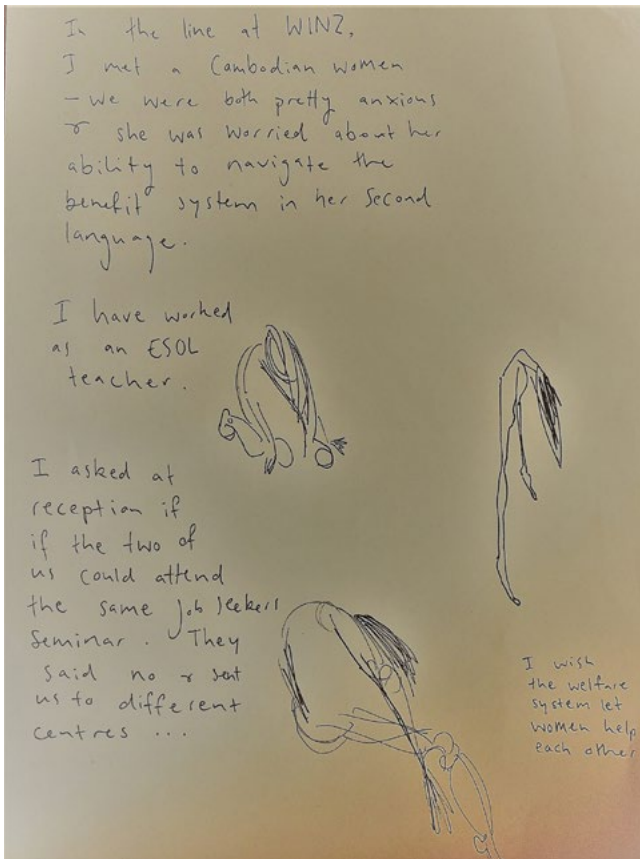 In the line at WINZ,
I met a Cambodian women
- we were both pretty anxious
& she was worried about her
ability to navigate the
benefit system in her second
language.
I have worked
as an ESOL
teacher.
I asked at
reception if
if the two of
us could attend
the same job seekers
seminar. They
said no & sent
us to different
centres ...
I wish
the welfare
system let
women help
each other